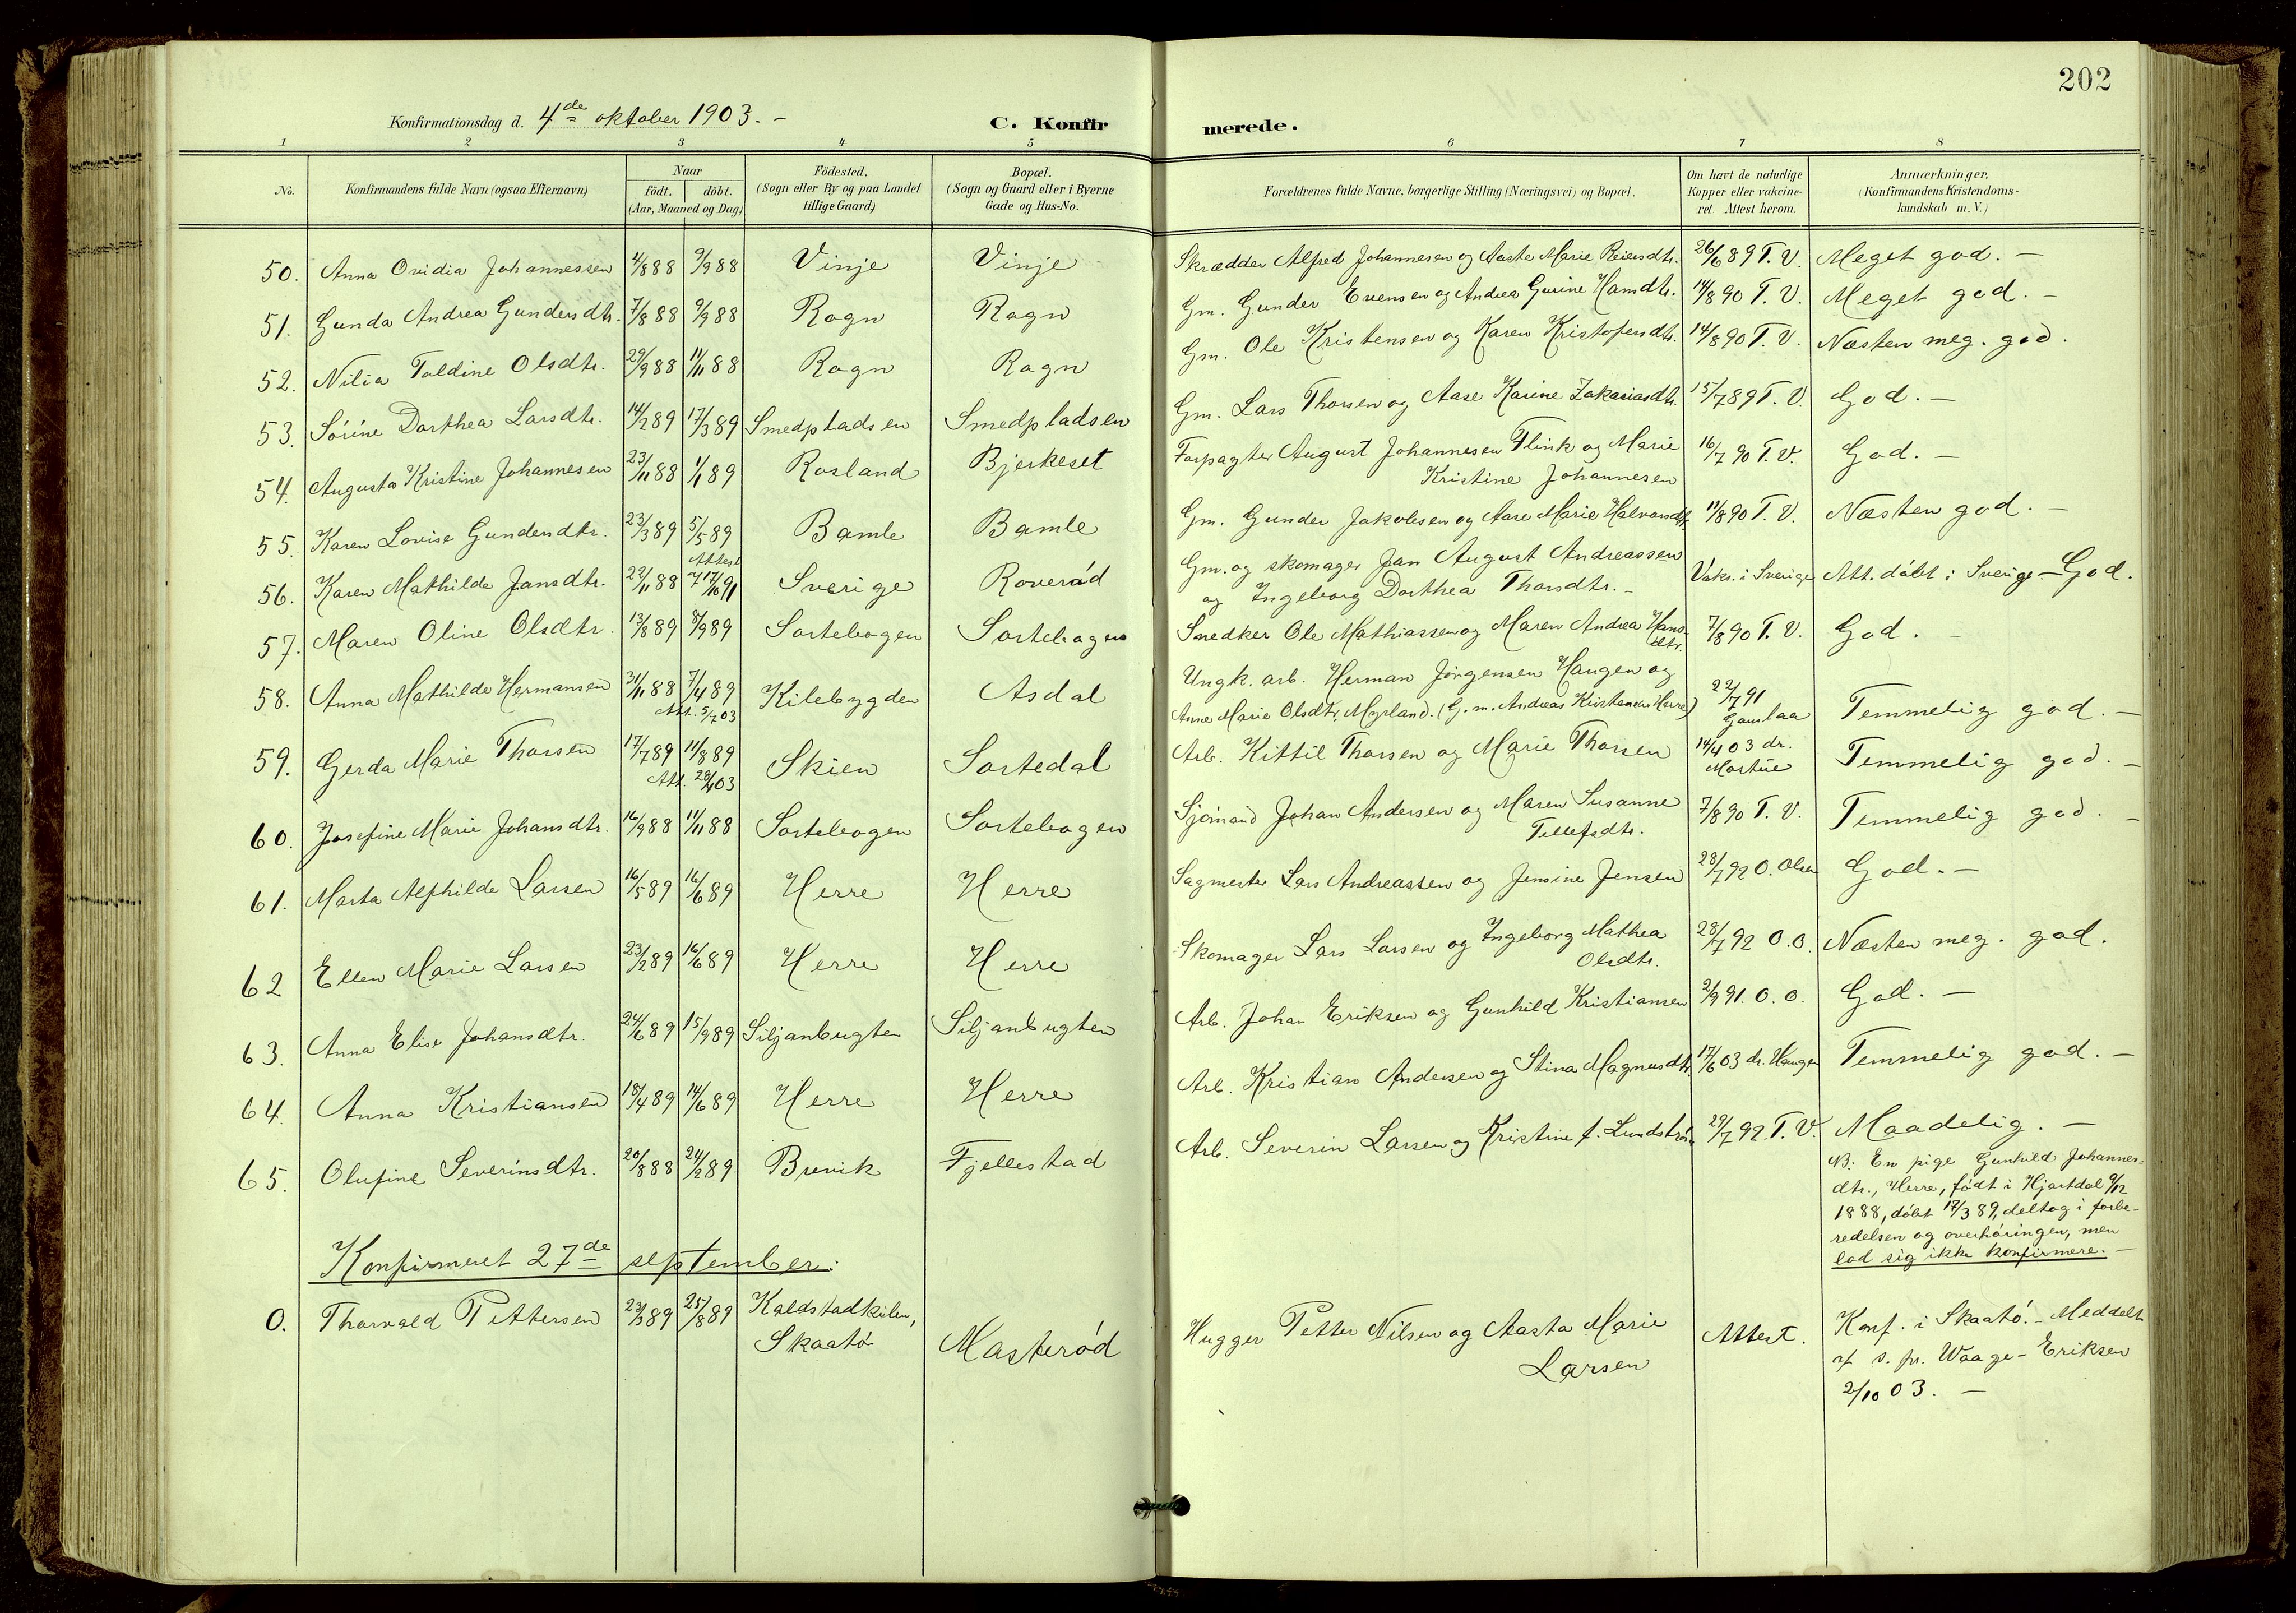 202
Konfirmationsdag d. 4de oktober 1903. –
C. Konfirmerede.
1 2 3 4 5 6 7 8
No. Konfirmandens fulde Navn (ogsaa Efternavn) Naar födt. döbt. (Aar, Maaned og Dag.) Födested. (Sogn eller By og paa Landet tillige Gaard.) Bopæl. (Sogn og Gaard eller i Byerne Gade og Hus-No. Forældrenes fulde Navne, borgerlige Stilling (Næringsvei) og Bopæl. Om havt de naturlige Kopper eller vakcineret. Attest herom. Anmærkninger. (Konfirmandens Kristendomskundskab m. V.)
50. Anna Ovidia Johannessen 4/8 88 9/9 88 Vinje Vinje Skrædder Alfred Johannesen og Aaste Marie Reiersdtr. 26/6 89 T. V. Meget god. –
51. Gunda Andrea Gundersdtr. 7/8 88 9/9 88 Rogn Rogn Gm. Gunder Evensen og Andrea Gurine Hansdtr. 14/8 90 T. V. Meget god. –
52. Nilia Toldine Olsdtr. 29/9 88 11/11 88 Rogn Rogn Gm. Ole Kristensen og Karen Kristofersdtr. 14/8 90 T. V. Næsten meg. god.
53. Sörine Dorthea Larsdtr. 14/2 89 17/3 89 Smedpladsen Smedpladsen Gm. Lars Thorsen og Aase Karine Zakariasdtr. 15/7 89 T. V. God. –
54. Augusta Kristine Johannesen 23/11 88 1/1 89 Rosland Bjerkeset Forpagter August Johannesen Flink og Marie
Kristine Johannesen 16/7 90 T. V. God. –
55. Karen Lovise Gundersdtr. 23/3 89 5/5 89 Bamle Bamle Gm. Gunder Jakobsen og Aase Marie Halvorsdtr. 11/8 90 T. V. Næsten god. –
56. Karen Mathilde Jansdtr. 22/11 88 Attest 17/10 91 Sverige Roveröd Gm. og skomager Jan August Andreassen
og Ingeborg Dorthea Thorsdtr. – Vaks. i Sverige Att. döbt i Sverige – God.
57. Maren Oline Olsdtr. 13/8 89 8/9 89 Sortebogen Sortebogen Snedker Ole Mathiassen og Maren Andrea Hans-
dtr. 7/8 90 T. V. God. –
58. Anna Mathilde Hermansen 31/11 88 7/4 89 Att. 5/7 03 Kilebygden Asdal Ungk. arb. Herman Jörgensen Haugen og
Anne Marie Olsdtr. Myrland. (G. m. Andreas Kristensen Herre) 22/7 91 Gauslaa Temmelig god. –
59. Gerda Marie Thorsen 17/7 89 11/8 89 Att. 28/4 03 Skien Sortedal Arb. Kittil Thorsen og Marie Thorsen 14/4 03 dr. Mortüe Temmelig god. –
60. Josefine Marie Johansdtr. 16/9 88 11/11 88 Sortebogen Sortebogen Sjömand Johan Andersen og Maren Susanne
Tellefsdtr. 7/8 90 T. V. Temmelig god. –
61. Marta Alfhilde Larsen 16/5 89 16/6 89 Herre Herre Sagmester Lars Andreassen og Jensine Jensen 28/7 92 O. Olsen God. –
62 Ellen Marie Larsen 23/2 89 16/6 89 Herre Herre Skomager Lars Larsen og Ingeborg Mathea
Olsdtr. 28/7 92 O. O. Næsten meg. god.
63. Anna Elise Johansdtr. 24/6 89 15/9 89 Siljanbugten Siljanbugten Arb. Johan Eriksen og Gunhild Kristiansen 2/9 91. O. O. God. –
64. Anna Kristiansen 18/4 89 14/6 89 Herre Herre Arb. Kristian Andersen og Stina Magnusdtr. 17/6 03 dr. Haugen Temmelig god. –
65. Olufine Severinsdtr. 20/8 88 24/2 89 Brevik Fjellestad Arb. Severin Larsen og Kristine f. Lundström 29/7 92. T. V. Maadelig. –
NB: En pige Gunhild Johannes-
dtr., Herre, födt i Hjartdal 9/12
1888, döbt 17/3 89, deltog i forbe-
redelsen og overhöringen, men
lod sig ikke konfirmere. –
Konfirmeret 27de september:
0. Thorvald Pettersen 23/3 89 25/8 89 Kaldstadkilen,
Skaatö Masteröd Hugger Petter Nilsen og Aasta Marie
Larsen Attest. Konf. i Skaatö. – Meddelt
af s. pr. Waage-Eriksen
2/10 03. –